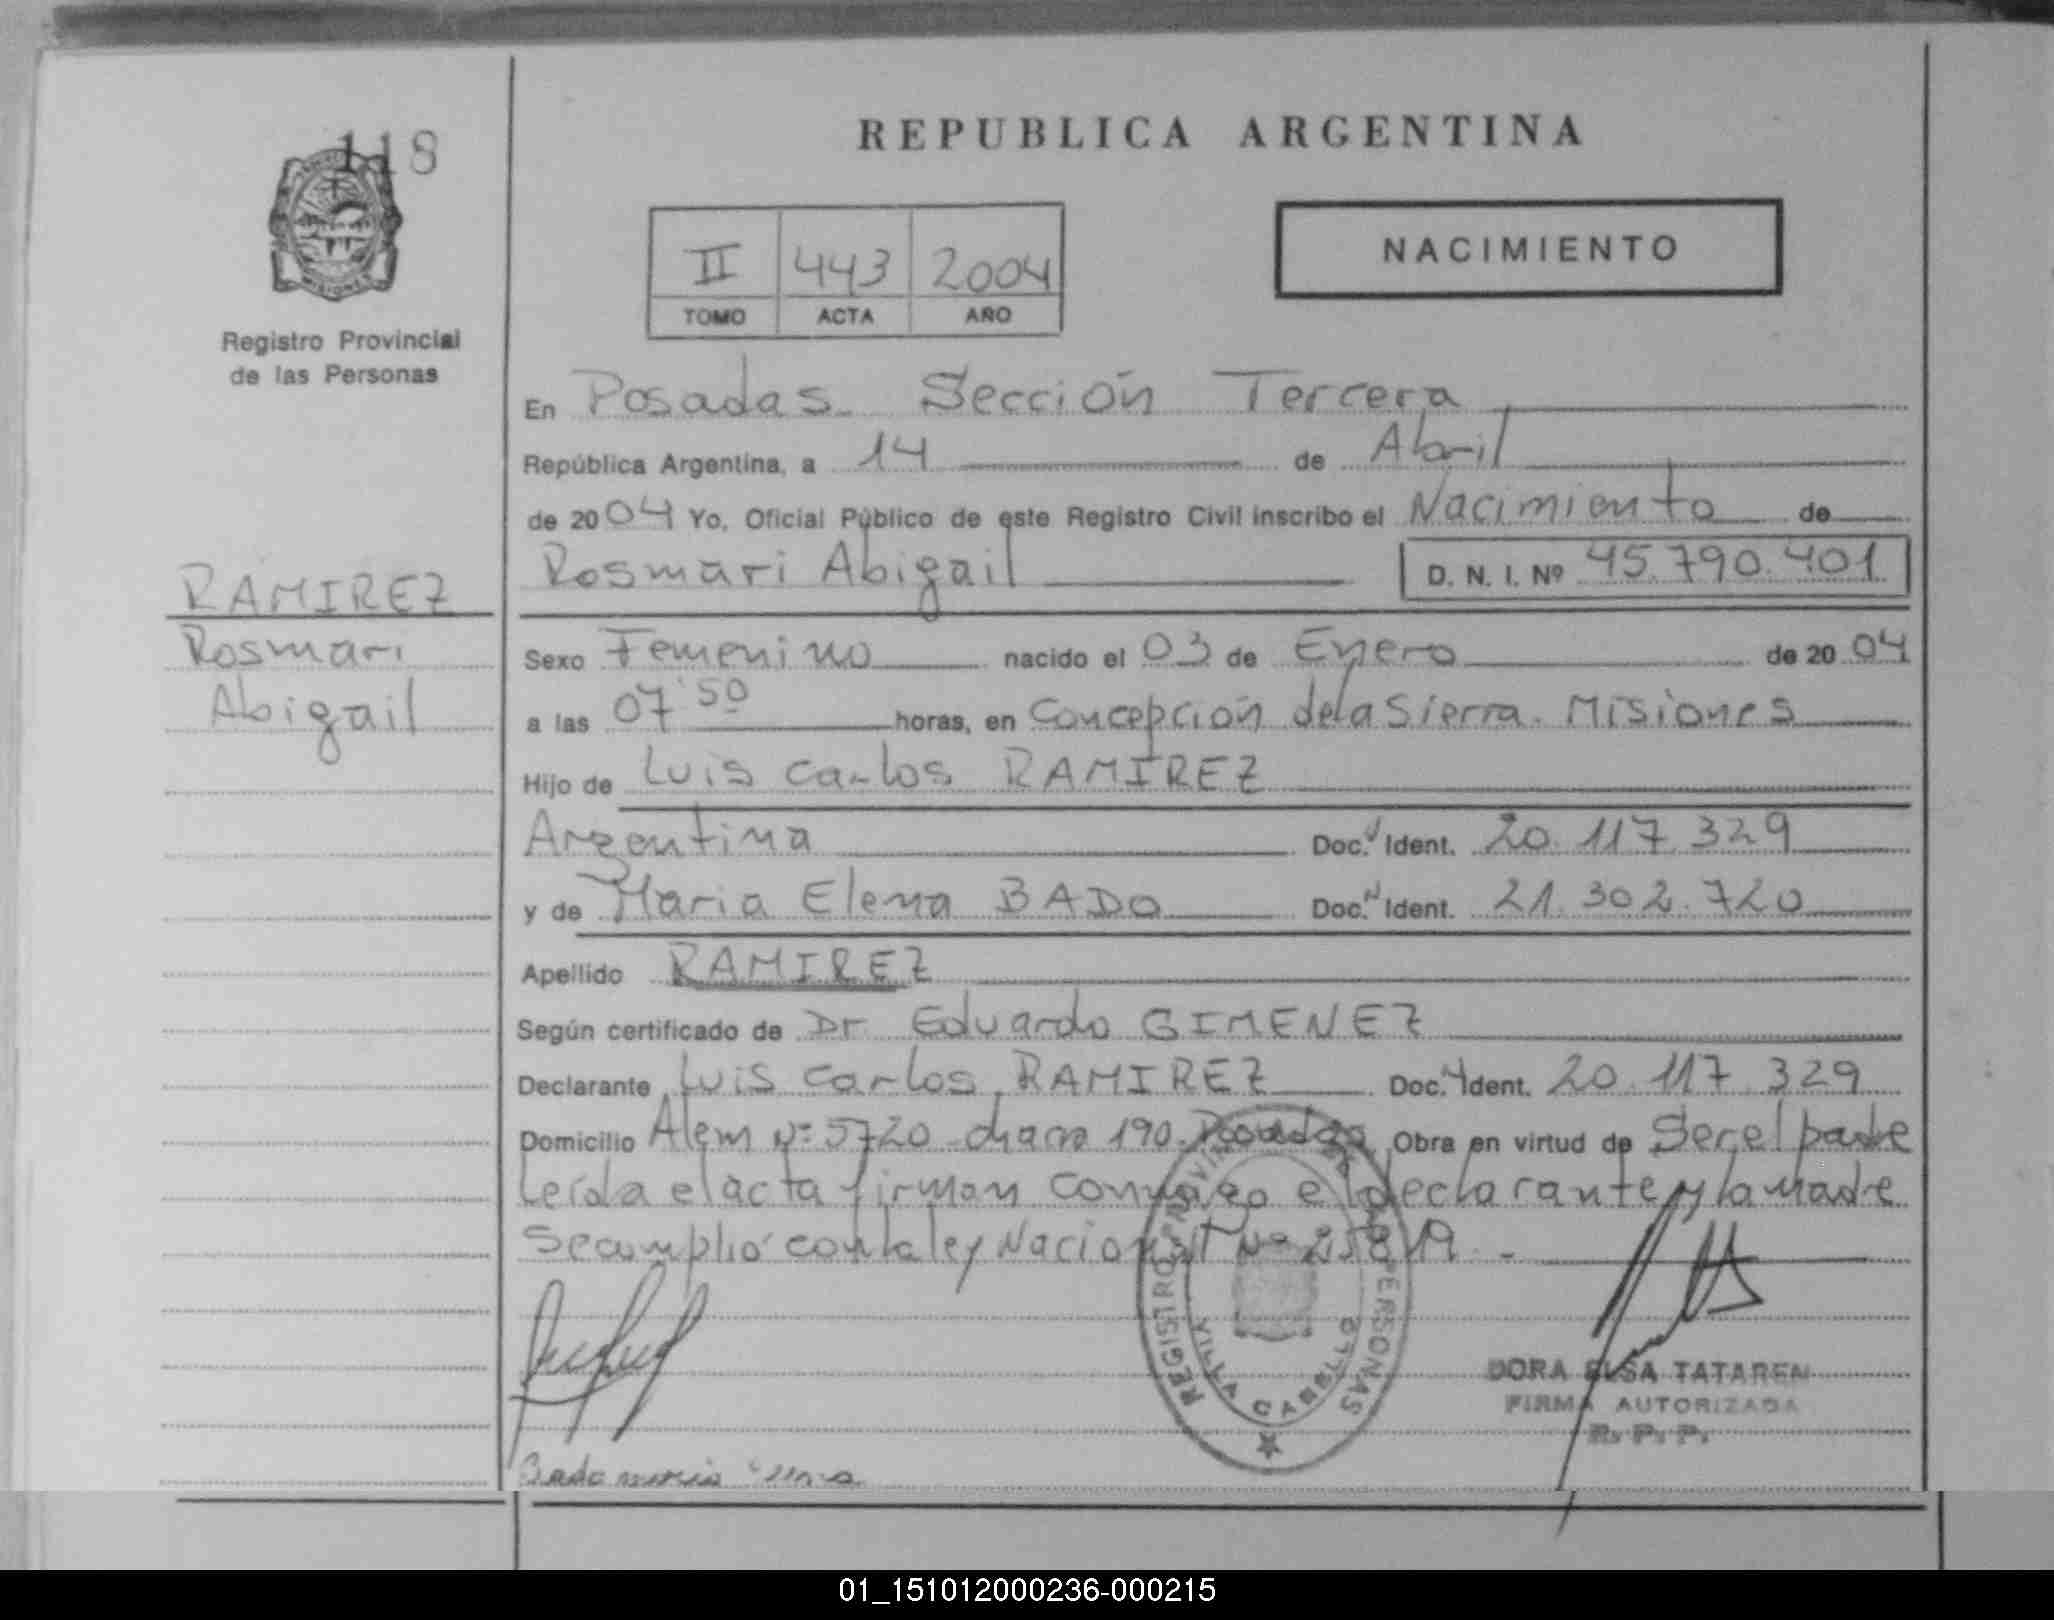 118
REPUBLICA ARGENTINA
MISIONES
Registro Provincial
de las Personas
II 443 2004
TOMO ACTA AÑO
NACIMIENTO
En Posadas. Sección Tercera
República Argentina, a 14 de Abril
de 2004 Yo, Oficial Público de este Registro Civil inscribo el Nacimiento de
Rosmari Abigail D. N. I. Nº 45.790.401
RAMIREZ
Rosmari
Abigail
Sexo Femenino nacido el 03 de Enero de 2004
a las 07'50 horas, en Concepción de la Sierra. Misiones
Hijo de Luis Carlos RAMIREZ
Argentina Doc. Ident. 20.117.329
y de Maria Elena BADO Doc. Ident. 21.302.720
Apellido RAMIREZ
Según certificado de Dr. Eduardo GIMENEZ
Declarante Luis Carlos RAMIREZ Doc. Ident. 20.117.329
Domicilio Alem Nº 5720 chacra 190. Posadas Obra en virtud de Ser el padre
Leída el acta firman conmigo el declarante y la madre
Se cumplió con la ley Nacional Nº
REGISTRO PROVINCIAL DE LAS PERSONAS
VILLA CABELLO
DORA ELSA TATAREN
FIRMA AUTORIZADA
R. P. P.
Bado maria
01_151012000236-000215